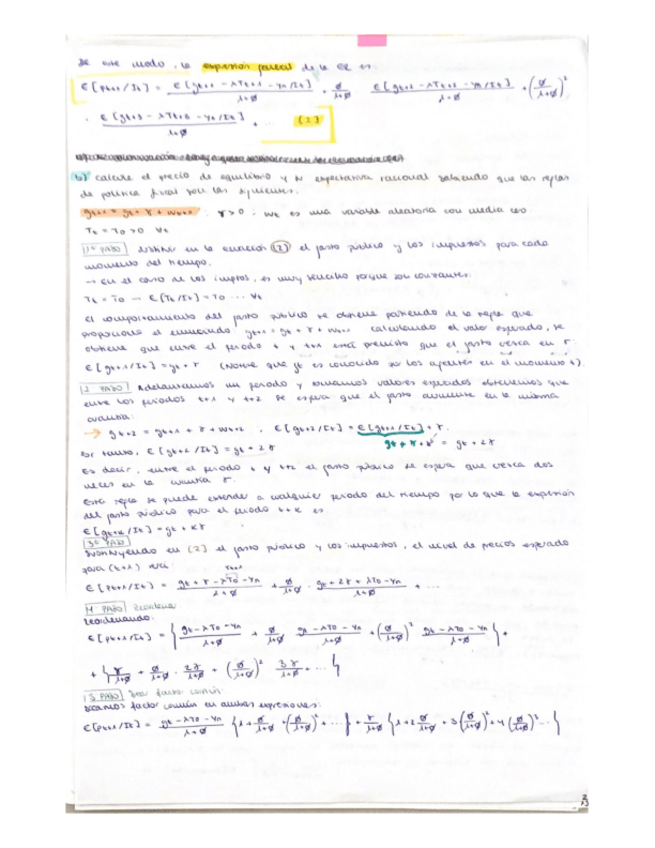 De este modo, la expresión parcial de la ER es:
E[Pt+1/It] = E[gt+1 - λTt+1 - Yn/It] / 1+Ø + Ø/1+Ø E[gt+2 - λTt+2 - Yn/It] / 1+Ø + (Ø/1+Ø)²
· E[gt+3 - λTt+3 - Yn/It] / 1+Ø + ... (2)
b) calcule el precio de equilibrio y la expectativa racional sabiendo que las reglas
de política fiscal son las siguientes:
gt+1 = gt + γ + Wt+1 ; γ > 0 ; Wt es una variable aleatoria con media cero
Tt = T0 > 0 ∀t
1º PASO sustituir en la ecuación (2) el gasto público y los impuestos para cada
momento del tiempo.
→ En el caso de los imptos, es muy sencillo porque son constantes:
Tt = T0 → E[Tt/It] = T0 ... ∀t
El comportamiento del gasto público se obtiene partiendo de la regla que
proporciona el enunciado gt+1 = gt + γ + Wt+1 calculando el valor esperado, se
obtiene que entre el periodo t y t+1 está previsto que el gasto crezca en γ:
E[gt+1/It] = gt + γ (Notese que gt es conocido por los agentes en el momento t).
2 PASO Adelantamos un periodo y tomamos valores esperados obtenemos que
entre los periodos t+1 y t+2 se espera que el gasto aumente en la misma
cuantía:
→ gt+2 = gt+1 + γ + Wt+2 ; E[gt+2/It] = E[gt+1/It] + γ.
Por tanto, E[gt+2/It] = gt + 2γ gt + γ + γ = gt + 2γ
Es decir, entre el periodo t y t+2 el gasto público se espera que crezca dos
veces en la cuantía γ.
Esta regla se puede extender a cualquier periodo del tiempo por lo que la expresión
del gasto público para el periodo t+k es
E[gt+k/It] = gt + kγ
3º PASO
Sustituyendo en (2) el gasto público y los impuestos, el nivel de precios esperado
para (t+1) será: Tt+1
E[Pt+1/It] = gt + γ - λT0 - Yn / 1+Ø + Ø/1+Ø · gt + 2γ + λT0 - Yn / 1+Ø + ...
4 PASO Reordenar
Reordenando:
E[Pt+1/It] = { gt - λT0 - Yn / 1+Ø + Ø/1+Ø gt - λT0 - Yn / 1+Ø + (Ø/1+Ø)² gt - λT0 - Yn / 1+Ø } +
+ { γ/1+Ø + Ø/1+Ø · 2γ/1+Ø + (Ø/1+Ø)² 3γ/1+Ø + ... }
5 PASO Sacar factor común:
Sacamos factor común en ambas expresiones:
E[Pt+1/It] = gt - λT0 - Yn / 1+Ø { 1 + Ø/1+Ø + (Ø/1+Ø)² + ... } + γ/1+Ø { 1 + 2 Ø/1+Ø + 3 (Ø/1+Ø)² + 4 (Ø/1+Ø)³ ... }